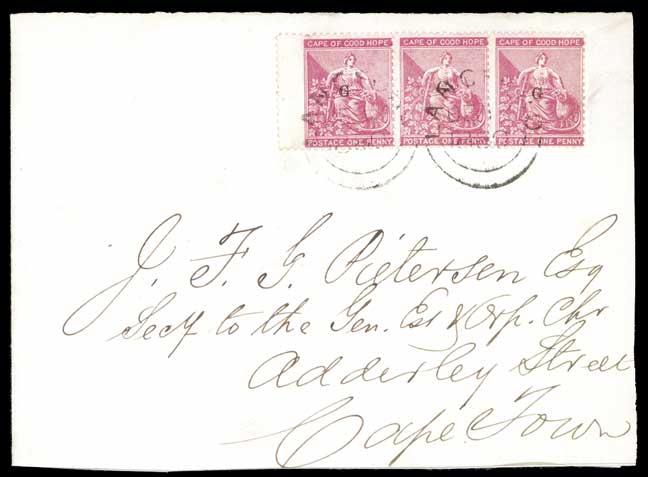 CAPE OF GOOD HOPE CAPE OF GOOD HOPE CAPE OF GOOD HOPE
G G
POSTAGE ONE PENNY POSTAGE ONE PENNY POSTAGE ONE PENNY
J. F. G. Pietersen Esq
Secy to the Gen. Est & Orp. Chr
Adderley Street
Cape Town